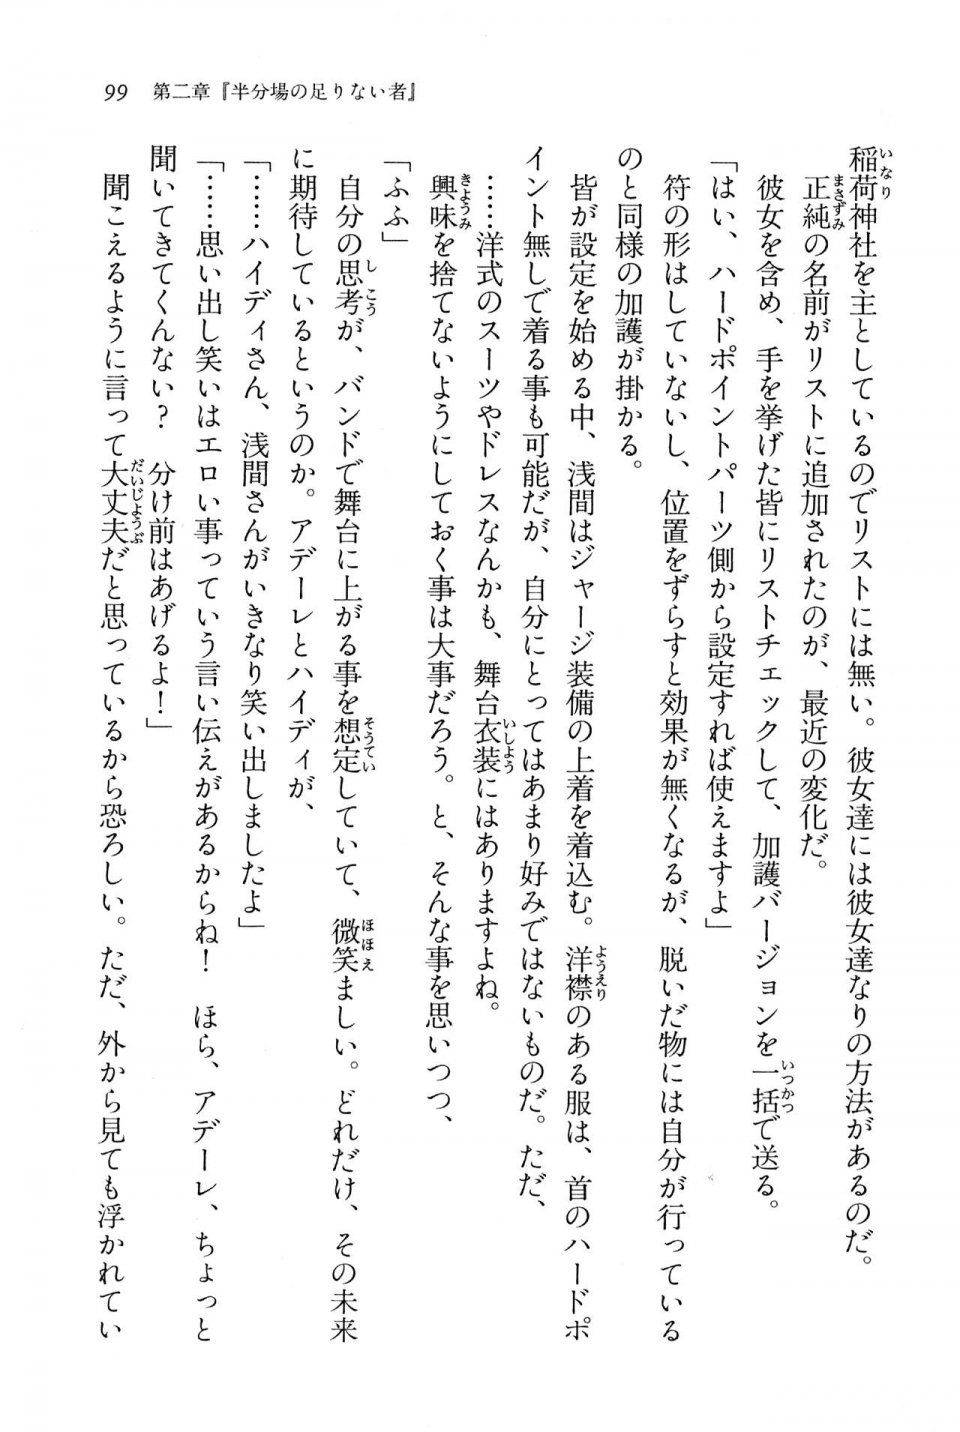 99　第二章『半分場の足りない者』
稲荷神社を主としているのでリストには無い。彼女達には彼女達なりの方法があるのだ。
正純の名前がリストに追加されたのが、最近の変化だ。
彼女を含め、手を挙げた皆にリストチェックして、加護バージョンを一括で送る。
「はい、ハードポイントパーツ側から設定すれば使えますよ」
符の形はしていないし、位置をずらすと効果が無くなるが、脱いだ物には自分が行っている
のと同様の加護が掛かる。
皆が設定を始める中、浅間はジャージ装備の上着を着込む。洋襟のある服は、首のハードポ
イント無しで着る事も可能だが、自分にとってはあまり好みではないものだ。ただ、
……洋式のスーツやドレスなんかも、舞台衣装にはありますよね。
興味を捨てないようにしておく事は大事だろう。と、そんな事を思いつつ、
「ふふ」
自分の思考が、バンドで舞台に上がる事を想定していて、微笑ましい。どれだけ、その未来
に期待しているというのか。アデーレとハイディが、
「……ハイディさん、浅間さんがいきなり笑い出しましたよ」
「……思い出し笑いはエロい事っていう言い伝えがあるからね！　ほら、アデーレ、ちょっと
聞いてきてくんない？　分け前はあげるよ！」
聞こえるように言って大丈夫だと思っているから恐ろしい。ただ、外から見ても浮かれてい